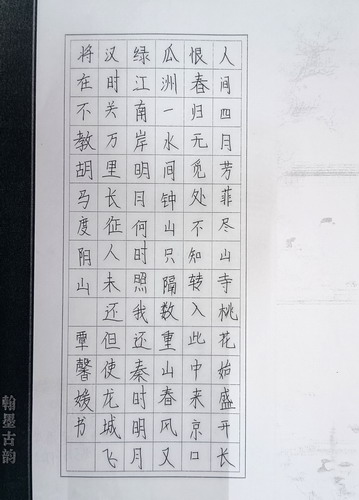 人间四月芳菲尽山寺桃花始盛开长
恨春归无觅处不知转入此中来京口
瓜洲一水间钟山只隔数重山春风又
绿江南岸明月何时照我还秦时明月
汉时关万里长征人未还但使龙城飞
将在不教胡马度阴山 覃馨媛书
翰墨古韵